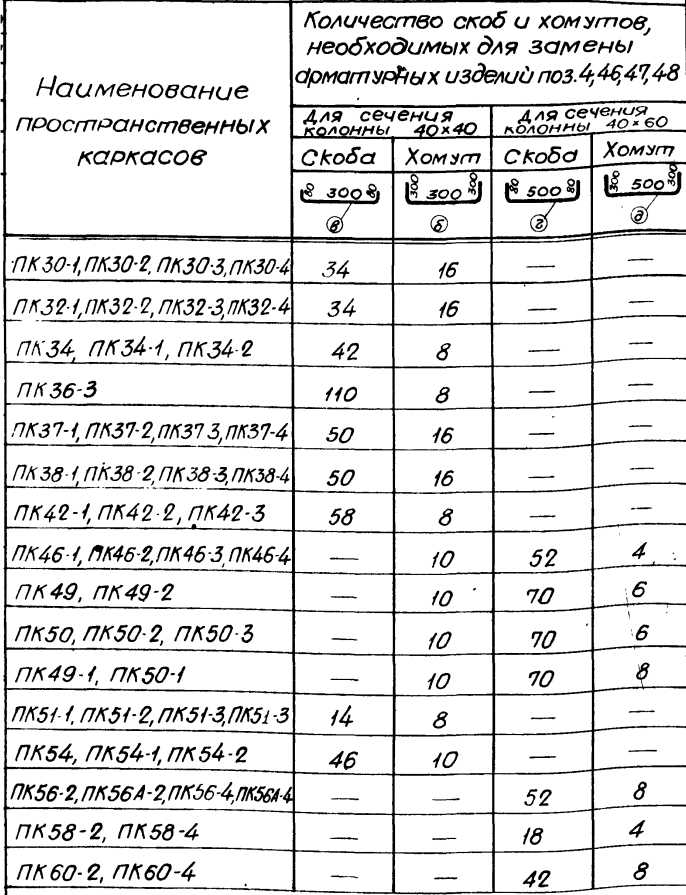 Наименование
пространственных
каркасов
Количество скоб и хомутов,
необходимых для замены
арматурных изделий поз.4,46,47,48
Для сечения
колонны 40×40
Для сечения
колонны 40×60
Скоба Хомут Скоба Хомут
80 300 80 300 300 300 80 500 80 300 500 300
в б г д
ПК30-1, ПК30-2, ПК30-3, ПК30-4 34 16 — —
ПК32-1, ПК32-2, ПК32-3, ПК32-4 34 16 — —
ПК34, ПК34-1, ПК34-2 42 8 — —
ПК36-3 110 8 — —
ПК37-1, ПК37-2, ПК37 3, ПК37-4 50 16 — —
ПК38-1, ПК38-2, ПК38-3, ПК38-4 50 16 — —
ПК42-1, ПК42-2, ПК42-3 58 8 — —
ПК46-1, ПК46-2, ПК46-3, ПК46-4 — 10 52 4
ПК49, ПК49-2 — 10 70 6
ПК50, ПК50-2, ПК50-3 — 10 70 6
ПК49-1, ПК50-1 — 10 70 8
ПК51-1, ПК51-2, ПК51-3, ПК51-3 14 8 — —
ПК54, ПК54-1, ПК54-2 46 10 — —
ПК56-2, ПК56А-2, ПК56-4, ПК56А-4 — — 52 8
ПК58-2, ПК58-4 — — 18 4
ПК60-2, ПК60-4 — — 42 8